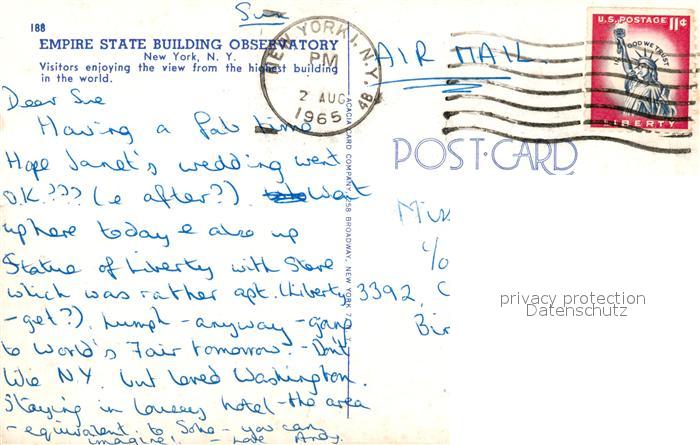 Sue
188
EMPIRE STATE BUILDING OBSERVATORY
New York, N. Y.
Visitors enjoying the view from the highest building
in the world.
Dear Sue
Having a fab time
Hope Janet's wedding went
O.K.??? (e after?) Went
up here today e also up
Statue of Liberty with Steve
which was rather apt. (Liberty
- get?). humph - anyway - going
to World's Fair tomorrow. - Don't
like N.Y. but loved Washington.
Staying in lousy hotel - the area
- equivalent to Soho - you can
imagine! - Love Andy.
ACACIA CARD COMPANY, 258 BROADWAY, NEW YORK 7, N.Y.
NEW YORK 1, N.Y.
PM
2 AUG
1965
48
AIR MAIL
U.S. POSTAGE 11¢
IN GOD WE TRUST
LIBERTY
POST-CARD
c/o
3392, C
Bir
privacy protection
Datenschutz